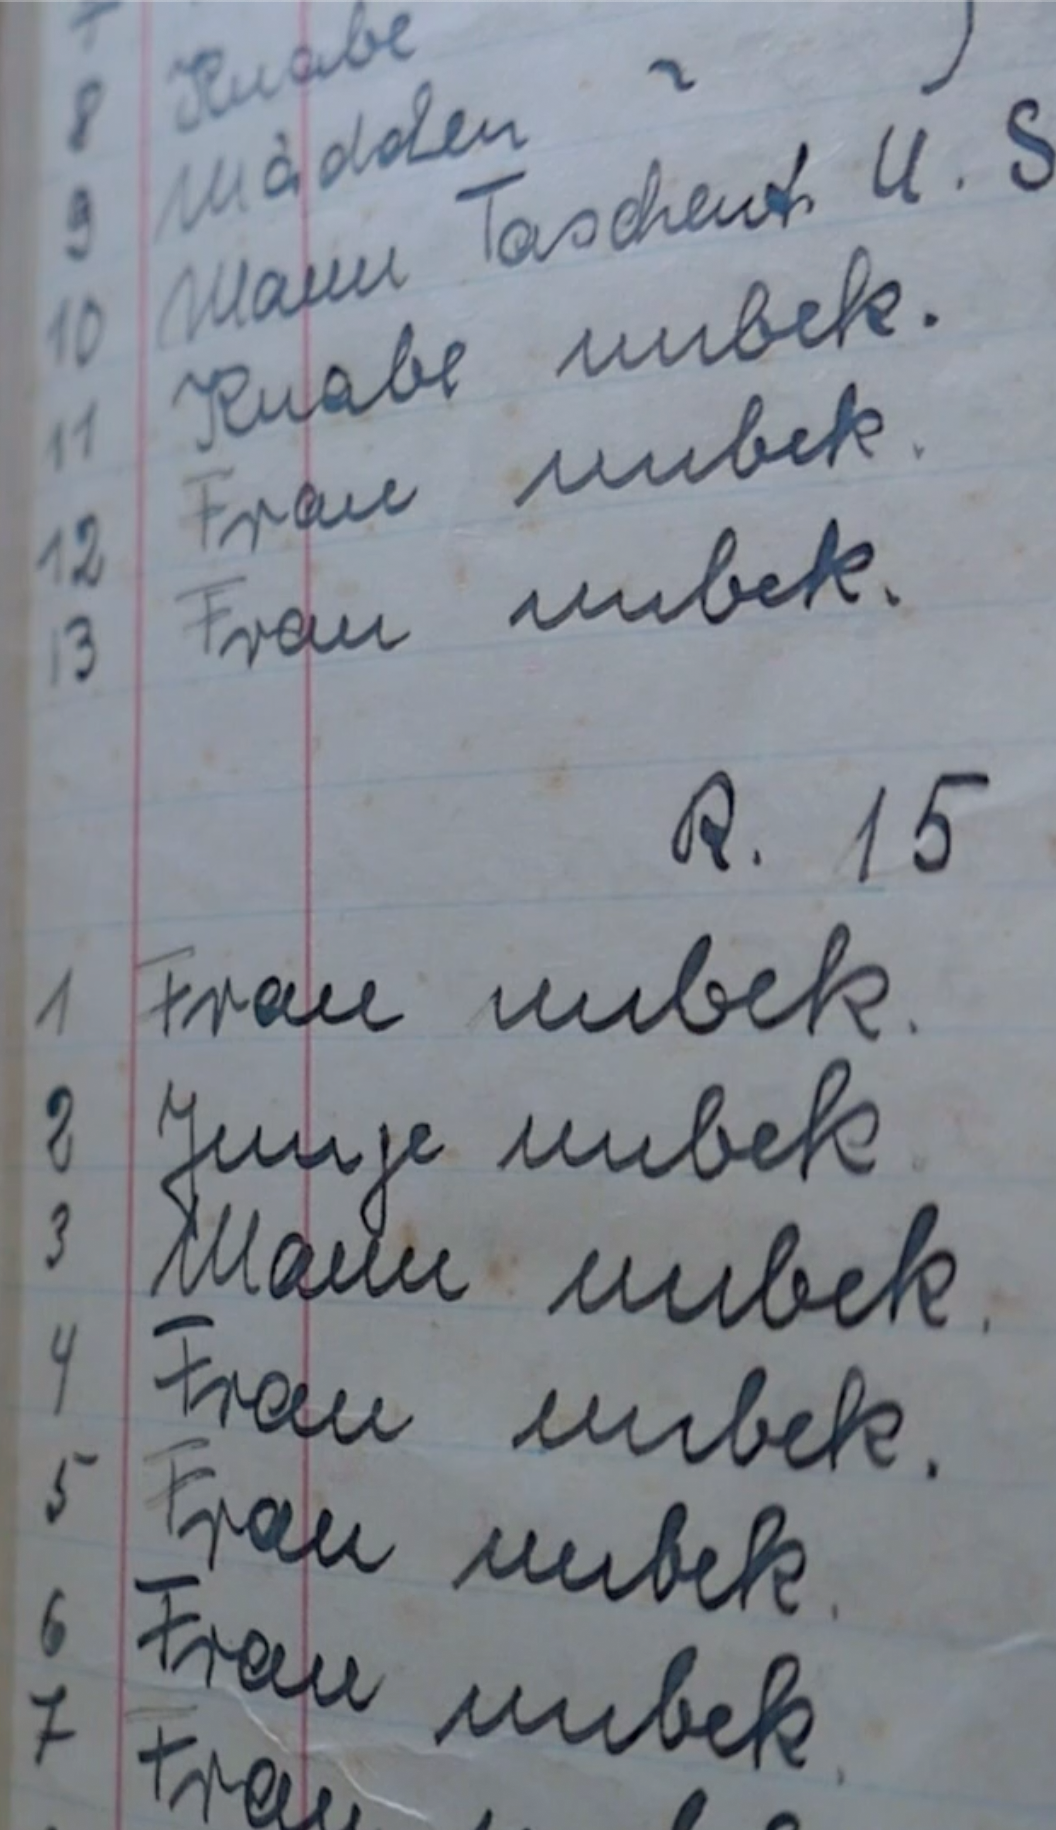 7
8 Knabe
9 Mädchen "
10 Mann Taschent. U. S
11 Knabe unbek.
12 Frau unbek.
13 Frau unbek.
R. 15
1 Frau unbek.
2 Junge unbek.
3 Mann unbek.
4 Frau unbek.
5 Frau unbek.
6 Frau unbek.
7 Frau